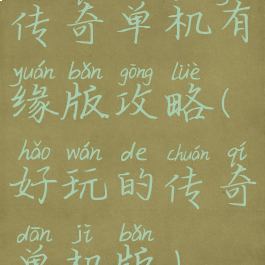 传奇单机有
yuán bǎn gōng lüè
缘版攻略(
hǎo wán de chuán qí
好玩的传奇
dān jī bǎn
单机版)